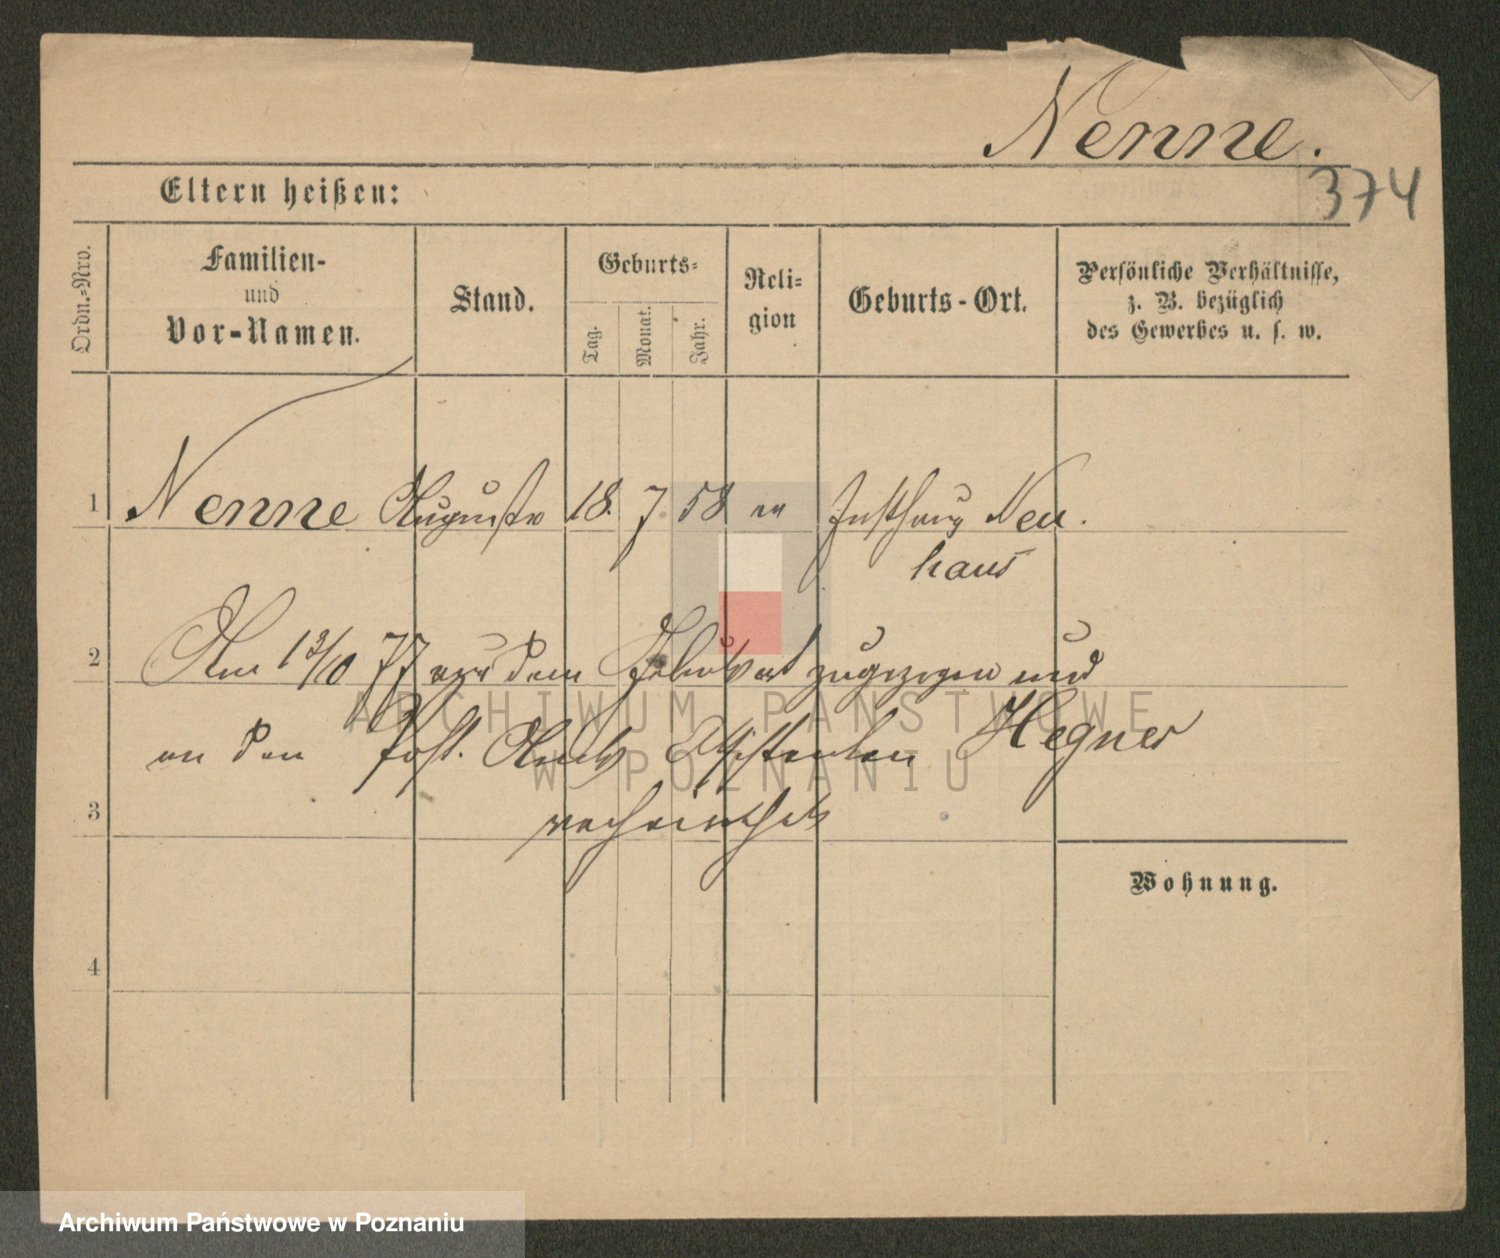 Nenne.
374
Eltern heißen:
Ordn.=Nro.
Familien-
und
Vor-Namen.
Stand.
Geburts=
Tag.
Monat.
Jahr.
Reli=
gion
Geburts-Ort.
Persönliche Verhältnisse,
z. B. bezüglich
des Gewerbes u. s. w.
1 Nenne Auguste 18. 7 58 ev Neu.
haus
2 Am 13/10 77 aus dem zugezogen und
an den Post. Assistenten Hegner
3 verheirathet
Wohnung.
4
ARCHIWUM PAŃSTWOWE
W POZNANIU
Archiwum Państwowe w Poznaniu